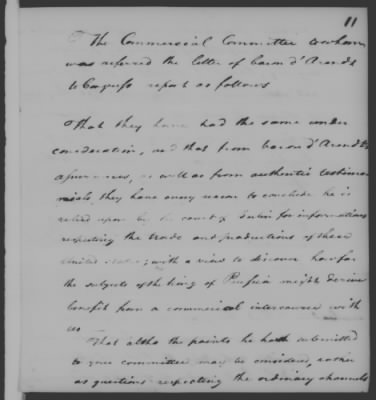 11
The Commercial Committee to whom
was referred the letter of baron d'Arendt
to Congress report as follows
That they have had the same under
consideration, and that from baron d'Arendt's
assurances, as well as from authentic testimo
nials, they have every reason to conclude he is
relied upon by the court of Berlin for informations
respecting the trade and productions of these
United States; with a view to discover how far
the subjects of the king of Prussia might derive
benefit from a commercial intercourse with
us
That altho the points he hath submitted
to your committee may be considered, rather
as questions respecting the ordinary channels